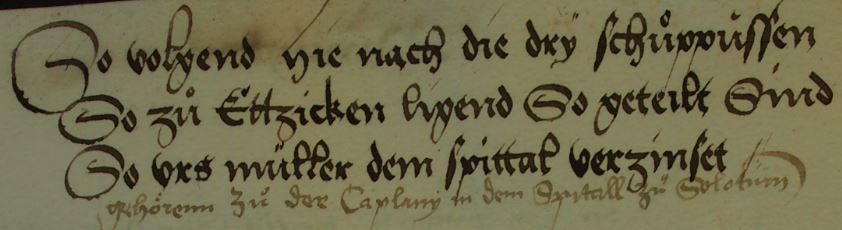 So volgend hie nach die dry schůppůssen
So zů Ettzicken ligend So geteilt Sind
So vrs müller dem spittal verzinset
gehörenn zů der Caplany in dem Spitall zů Solotůrn